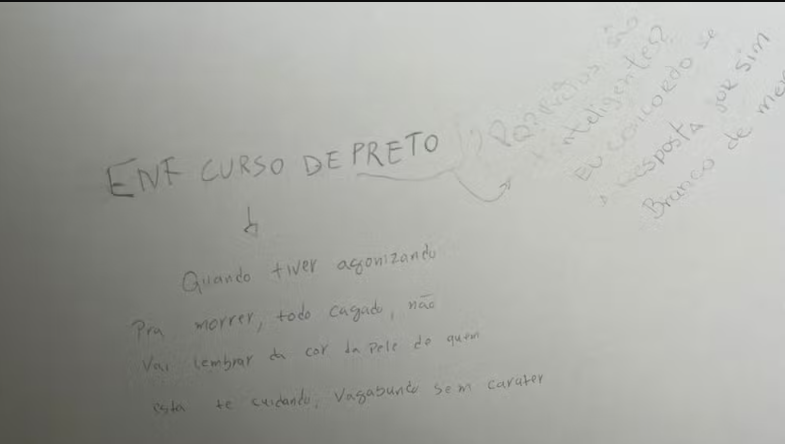 ENF CURSO DE PRETO
Quando tiver agonizando
Pra morrer, todo cagado, não
Vai lembrar da cor da pele de quem
ista te cuidando, Vagabundo sem carater
são
inteligentes?
EU CONCORDO se
A resposta for sim
Branco de